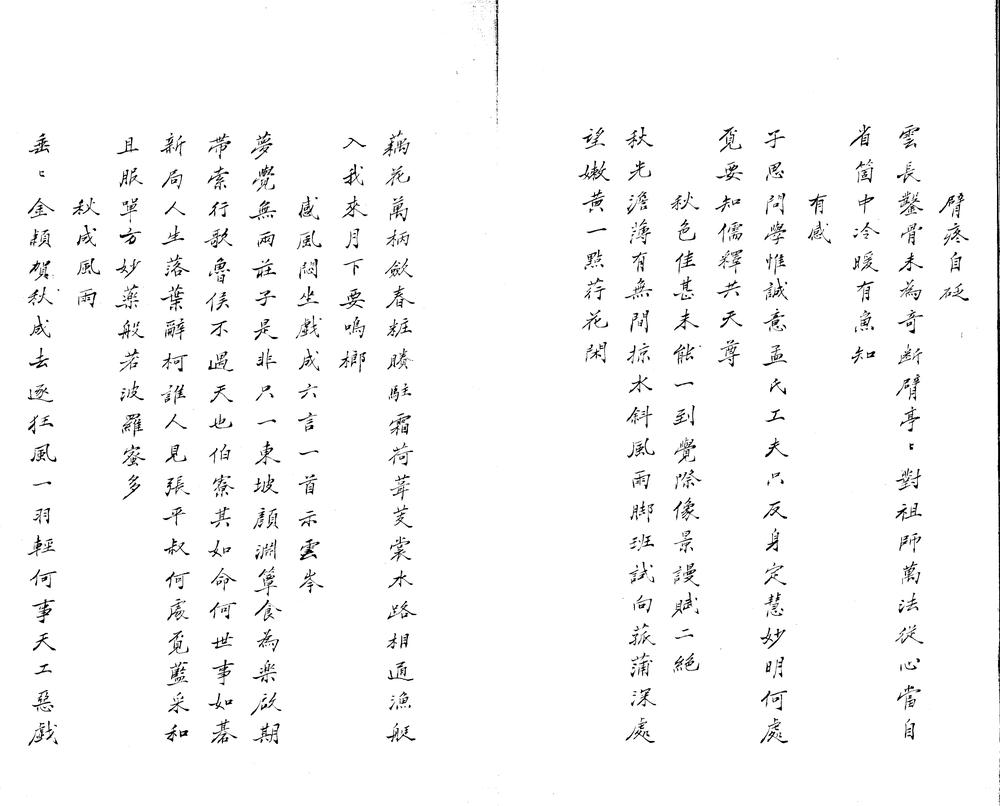 臂疼自砭
雲長鑿骨未為奇斷臂亭〻對祖師萬法從心當自
省箇中冷暖有魚知
有感
子思問學惟誠意孟氏工夫只反身定慧妙明何處
覓要知儒釋共天尊
秋色佳甚未能一到覺際像景謾賦二絕
秋光澹薄有無間掠水斜風雨脚班試向菰蒲深處
望嫩黃一點荇花閑
藕花萬柄斂春粧賸駐霜荷葺芰裳水路相通漁艇
入我來月下要鳴榔
感風悶坐戲成六言一首示雲岑
夢覺無兩莊子是非只一東坡顏淵簞食為樂啟期
帶索行歌魯侯不遇天也伯寮其如命何世事如碁
新局人生落葉辭柯誰人見張平叔何處覓藍采和
且服單方妙藥般若波羅蜜多
秋成風雨
垂〻金穎賀秋成去逐狂風一羽輕何事天工惡戲